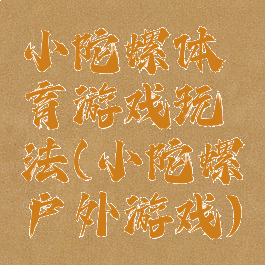 小陀螺体
育游戏玩
法(小陀螺
户外游戏)